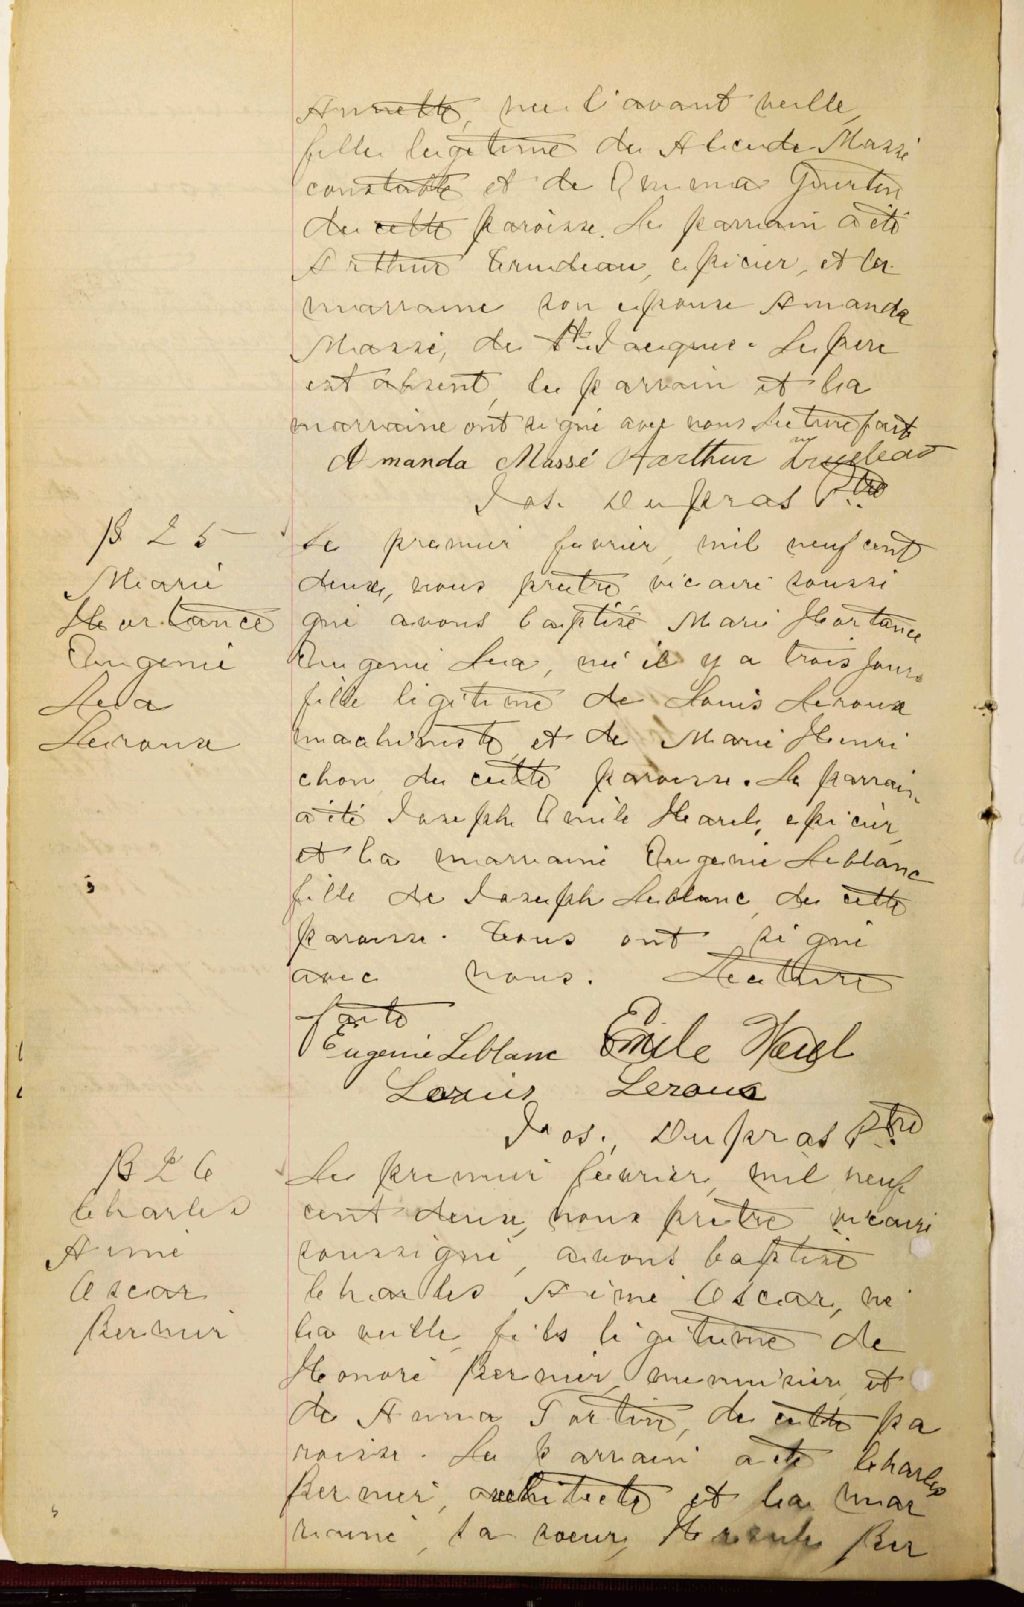 Annette, née l'avant veille,
fille legitime de Alcide Massé
constable et de Emma Fortin
de cette paroisse. Le parrain a été
Arthur Trudeau, epicier, et la
marraine son epouse Amanda
Massé, de St Jacques. Le pere
est absent, le parrain et la
marraine ont signé avec nous Lecture faite
Amanda Massé Arthur Trudeau
Jos. Dupras Ptre
B 25
Marie
Hortance
Eugenie
Lea
Leroux
Le premier fevrier, mil neuf cent
deux, nous prètre vicaire soussi
gné avons baptisé Marie Hortance
Eugenie Lea, né il y a trois jours
fille ligitime de Louis Leroux
machiniste, et de Marie Henri
chon de cette paroisse. Le parrain
a été Joseph Emile Harel, epicier,
et la marraine Eugenie Leblanc
fille de Joseph Leblanc, de cette
paroisse. Tous ont signé
avec nous. Lecture
faite
Eugenie Leblanc Emile Harel
Louis Leroux
Jos. Dupras Ptre
B 26
Charles
Aimé
Oscar
Bernier
Le premier fevrier, mil neuf
cent deux, nous prètre vicaire
soussigné, avons baptisé
Charles Aimé Oscar, né
la veille, fils ligitime de
Honoré Bernier, menuisier, et
de Anna Fortin, de cette pa
roisse. Le parrain a été Charles
Bernier, architecte et la mar
raine, sa soeur, Ber